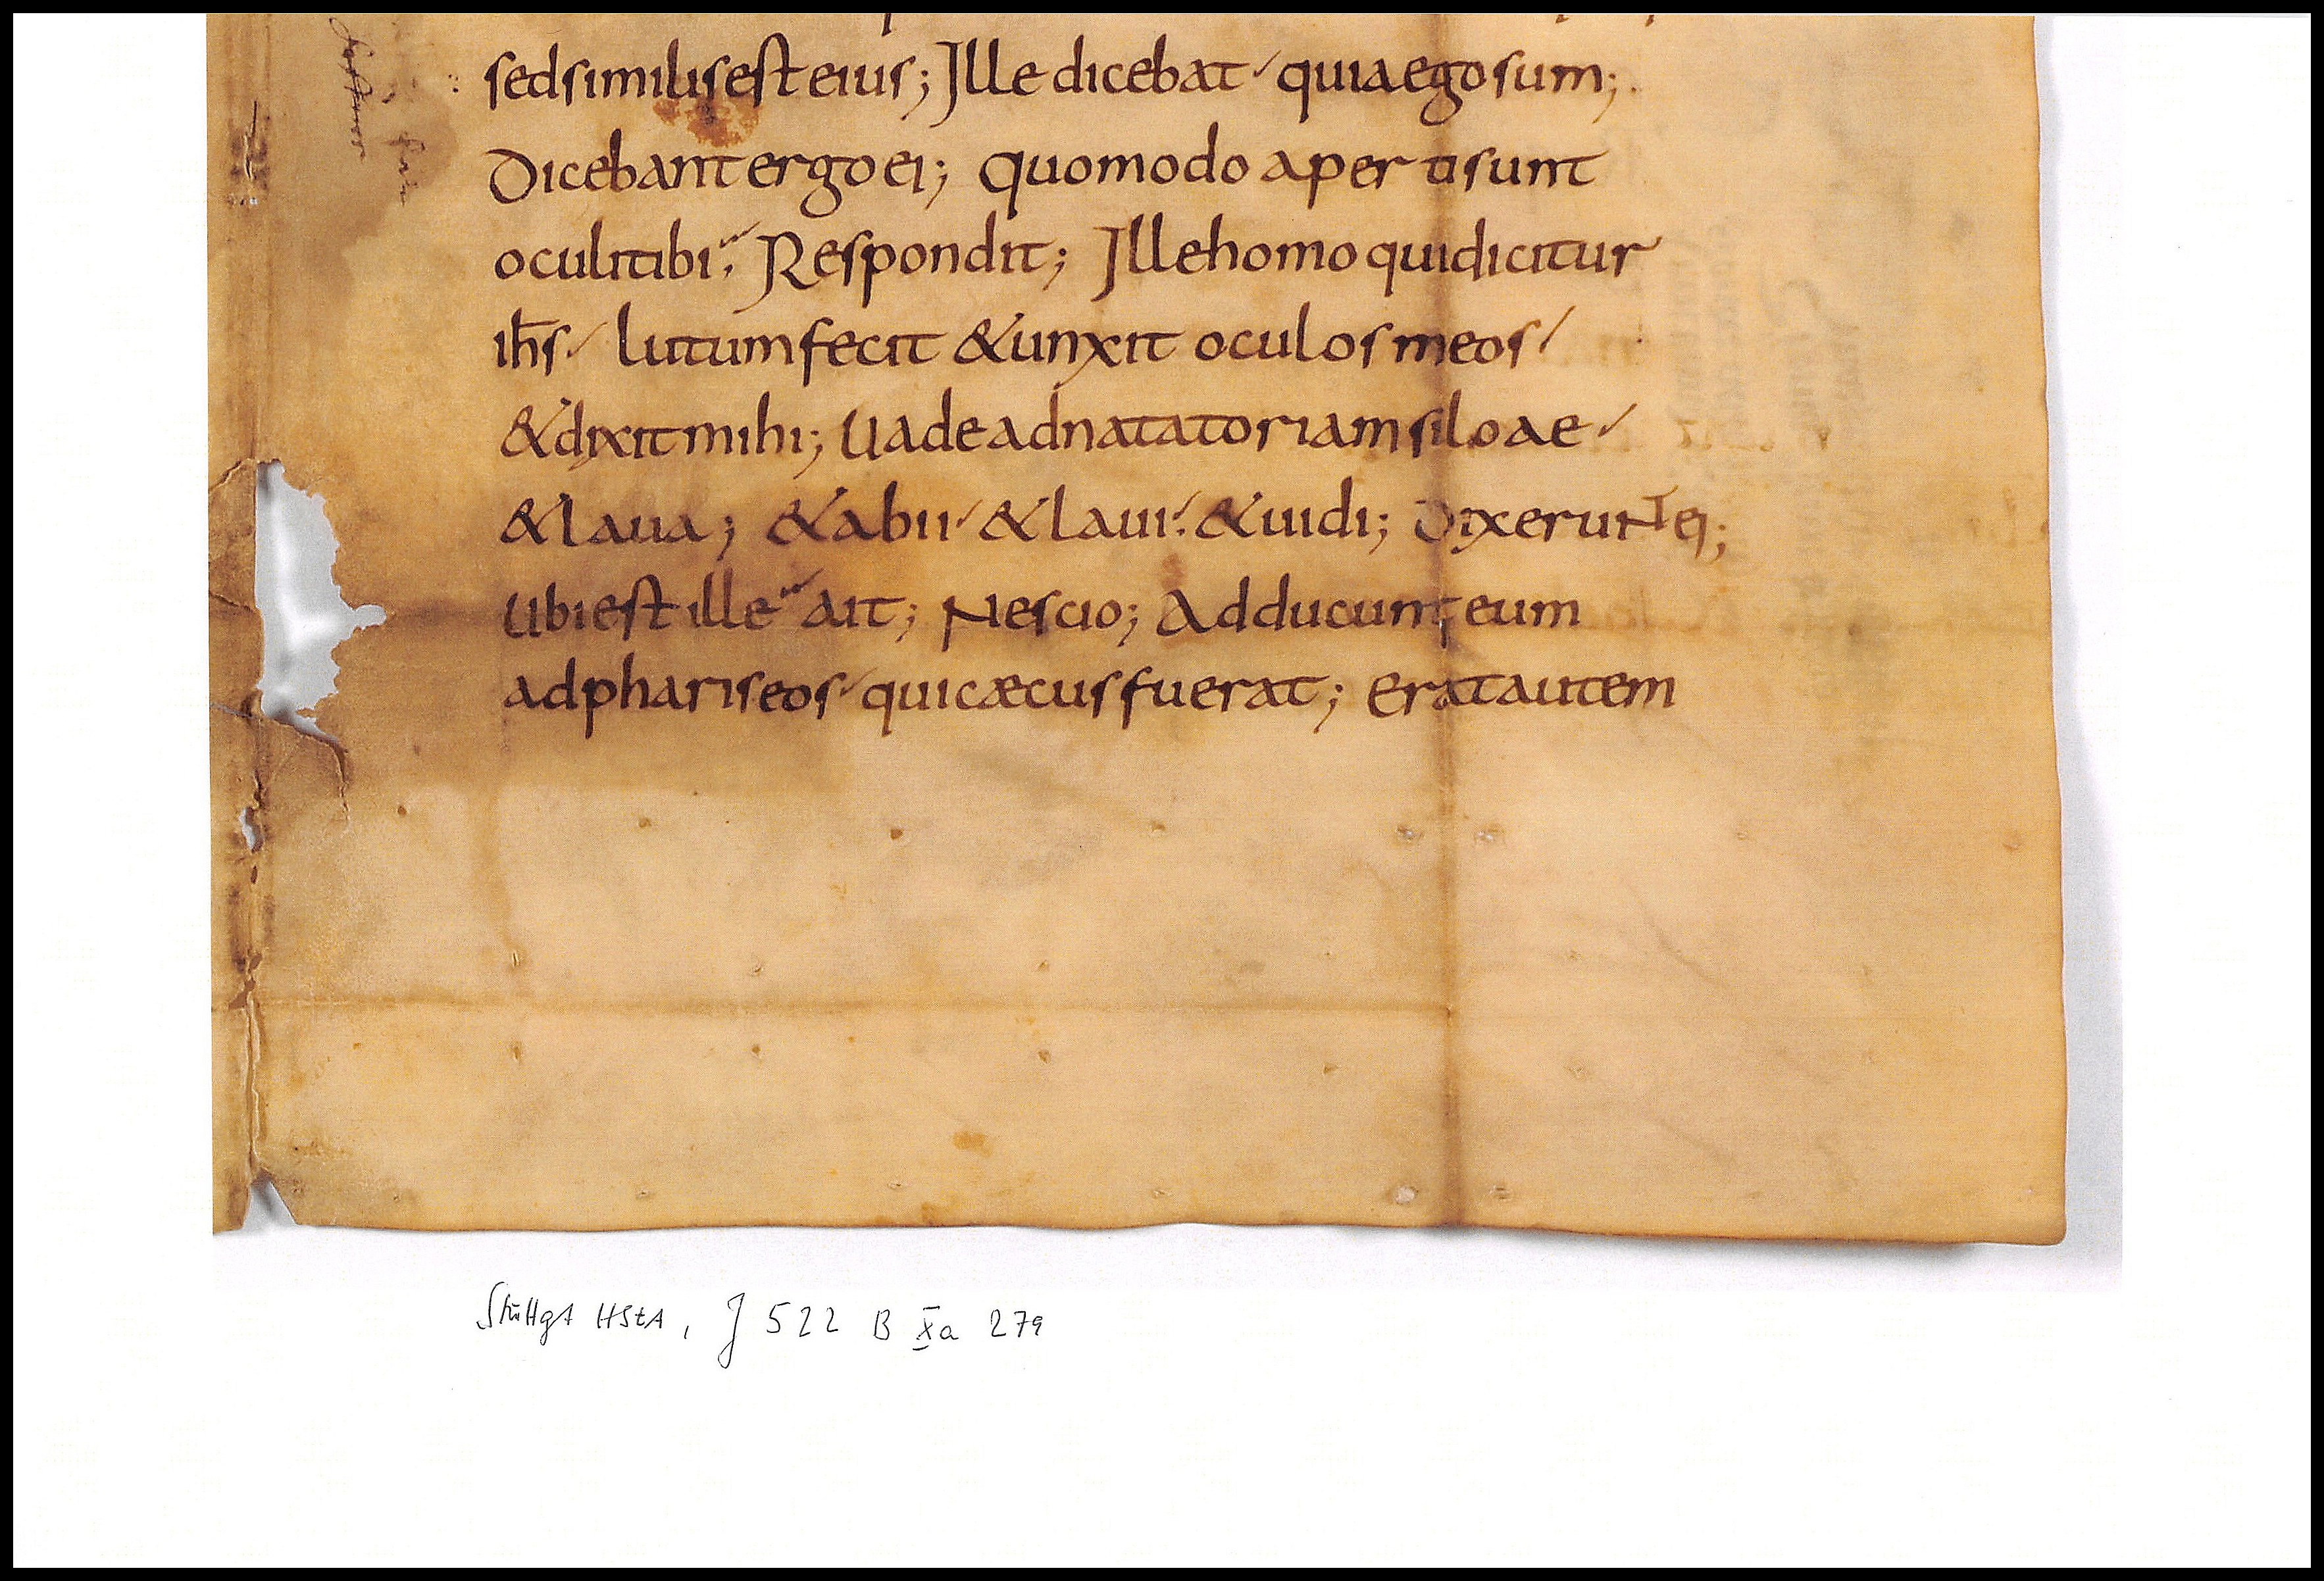 sed similis est eius; Ille dicebat quia ego sum;
Dicebant ergo ei; quomodo aperti sunt
oculi tibi; Respondit; Ille homo qui dicitur
ih̅s lutum fecit & unxit oculos meos
& dixit mihi; Uade ad natatoriam siloae
& laua; & abii & laui & uidi; Dixerunt ei;
Ubi est ille ait; Nescio; Adducunt eum
ad phariseos qui cæcus fuerat; erat autem
Stuttgt HStA, J 522 B Xa 279